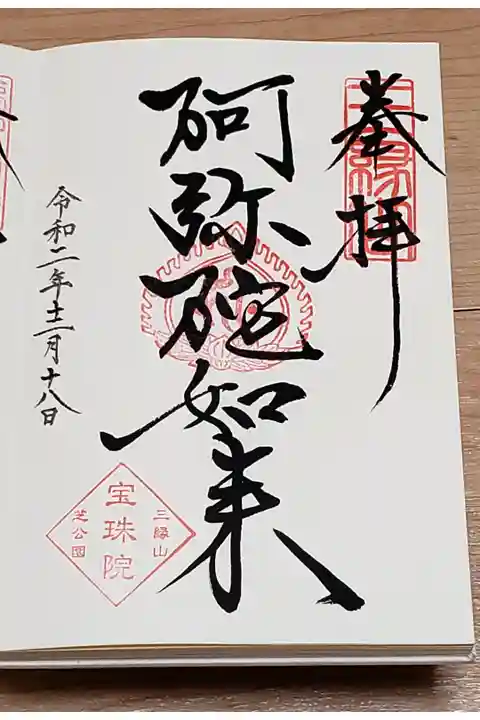 奉拝
三縁山
阿弥陀如来
令和二年十一月十八日
三縁山
宝珠院
芝公園